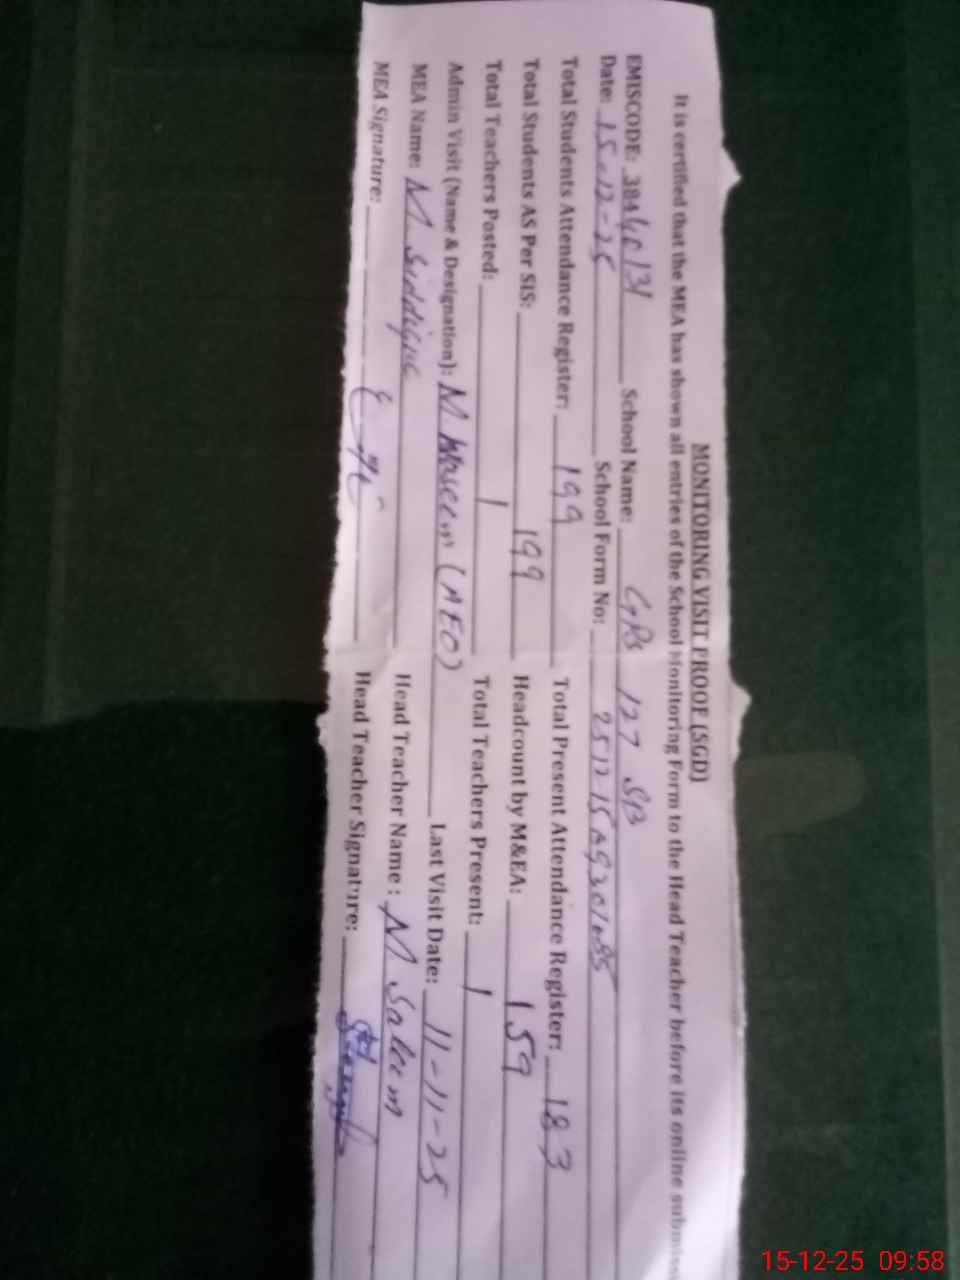 MONITORING VISIT PROOF (SGD)
It is certified that the MEA has shown all entries of the School Monitoring Form to the Head Teacher before its online
EMISCODE: School Name: 127 SB
Date: 15-12-25 School Form No:
Total Students Attendance Register: 199 Total Present Attendance Register: 183
Total Students AS Per SIS: 199 Headcount by M&EA: 159
Total Teachers Posted: 1 Total Teachers Present: 1
Admin Visit (Name & Designation): M Waseem (AEO) Last Visit Date: 11-11-25
MEA Name: M Siddique Head Teacher Name: M Saleem
MEA Signature: Head Teacher Signature:
15-12-25 09:58